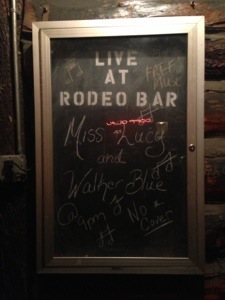 LIVE
AT
RODEO BAR
FREE
Miss Lucy
and
Walker Blue
@ 9pm
No
Cover